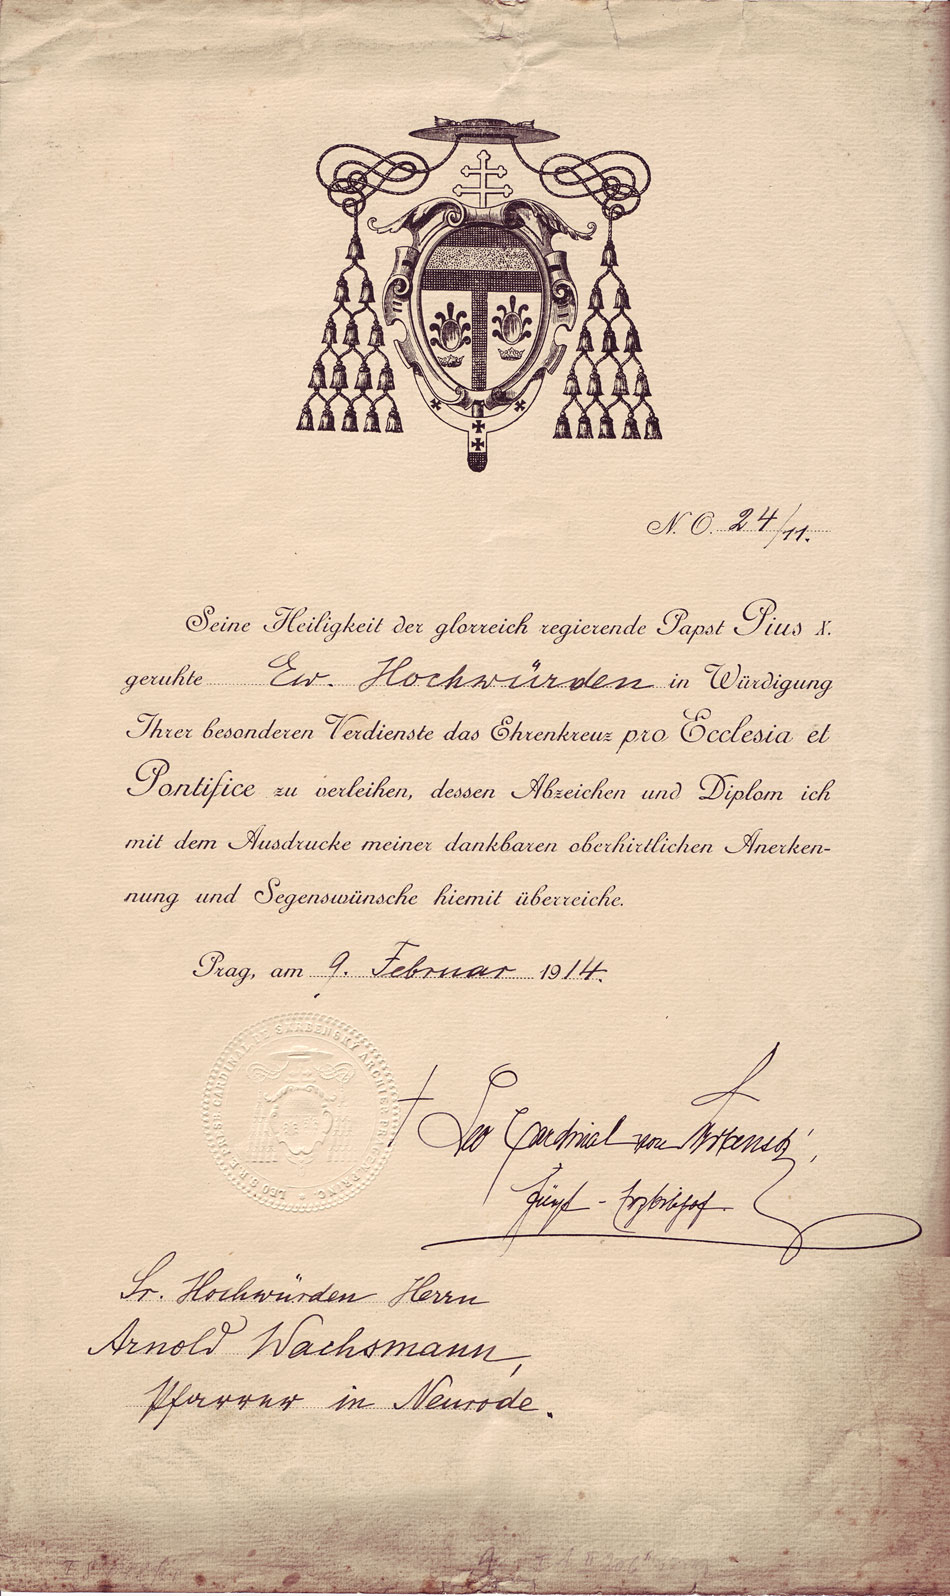 N. O. 24/11.
Seine Heiligkeit der glorreich regierende Papst Pius X.
geruhte Ew. Hochwürden in Würdigung
Ihrer besonderen Verdienste das Ehrenkreuz pro Ecclesia et
Pontifice zu verleihen, dessen Abzeichen und Diplom ich
mit dem Ausdrucke meiner dankbaren oberhirtlichen Anerken-
nung und Segenswünsche hiemit überreiche.
Prag, am 9. Februar 1914.
LEO S. R. E. PRESB. CARDINAL DE SKRBENSKY ARCHIEP.
† Leo Cardinal von Skrbenský,
Fürst-Erzbischof.
Sr. Hochwürden Herrn
Arnold Wachsmann,
Pfarrer in Neurode.